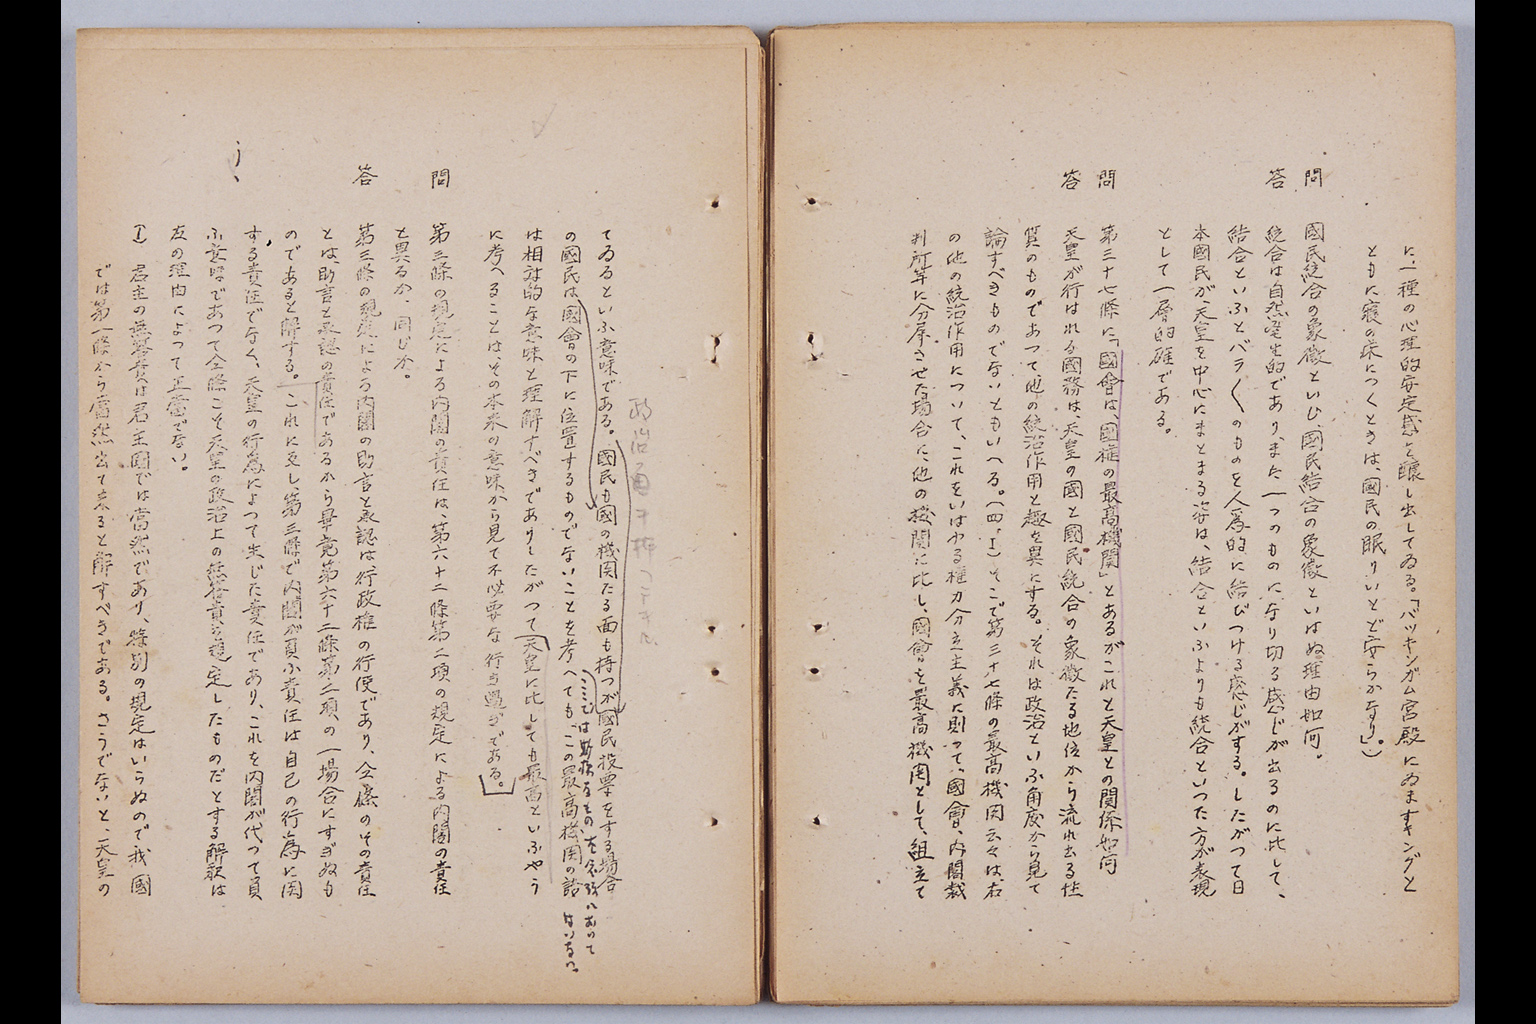 に、一種の心理的安定感を醸し出してゐる。「バツキンガム宮殿にゐますキングと
ともに寝の床につくときは、國民の眠りいとど安らかなり」。）
問　國民統合の象徴といひ、國民結合の象徴といはぬ理由如何。
答　統合は自然発生的であり、また一つのものになり切る感じが出るのに比して、
結合といふとバラ〱のものを人為的に結びつける感じがする。したがつて日
本國民が、天皇を中心にまとまる姿は、結合といふよりも統合といつた方が表現
として一層的確である。
問　第三十七條に「國會は、國権の最高機関」とあるがこれと天皇との関係如何
答　天皇が行はれる國務は、天皇の國と國民統合の象徴たる地位から流れ出る性
質のものであつて、他の統治作用と趣を異にする。それは政治といふ角度から見て
論ずべきものでないともいへる。（四、1）そこで第三十七條の最高機関云々は、右
の他の統治作用について、これをいはゆる権力分立主義に則つて、國會、内閣裁
判所等に分属させた場合に、他の機関に比し、國會を最高機関として、組立て
政治面
てゐるといふ意味である。國民も國の機関たる面も持つが國民投票をする場合
ここでは
の國民は、國會の下に位置するものでないことを考へても、この最高機関の語
は相対的な意味と理解すべきでありしたがつて天皇に比しても最高といふやう
に考へることは、その本来の意味から見て不必要な行き過ぎである。
問　第三條の規定による内閣の責任は、第六十二條第二項の規定による内閣の責任
と異るか、同じか。
答　第三條の規定による内閣の助言と承認は行政権の行使であり、全條のその責任
とは、助言と承認の責任であるから畢竟第六十二條第二項の一場合にすぎぬも
のであると解する。これに反し、第三條で内閣が負ふ責任は自己の行為に関
する責任でなく、天皇の行為によつて生じた責任であり、これを内閣が代つて負
ふ意味であつて全條こそ天皇の政治上の無答責を規定したものだとする解釈は
左の理由によつて正当でない。
1）君主の無答責は君主國では当然であり、特別の規定はいらぬので我國
では第一條から当然出て来ると解すべきである。さうでないと、天皇の